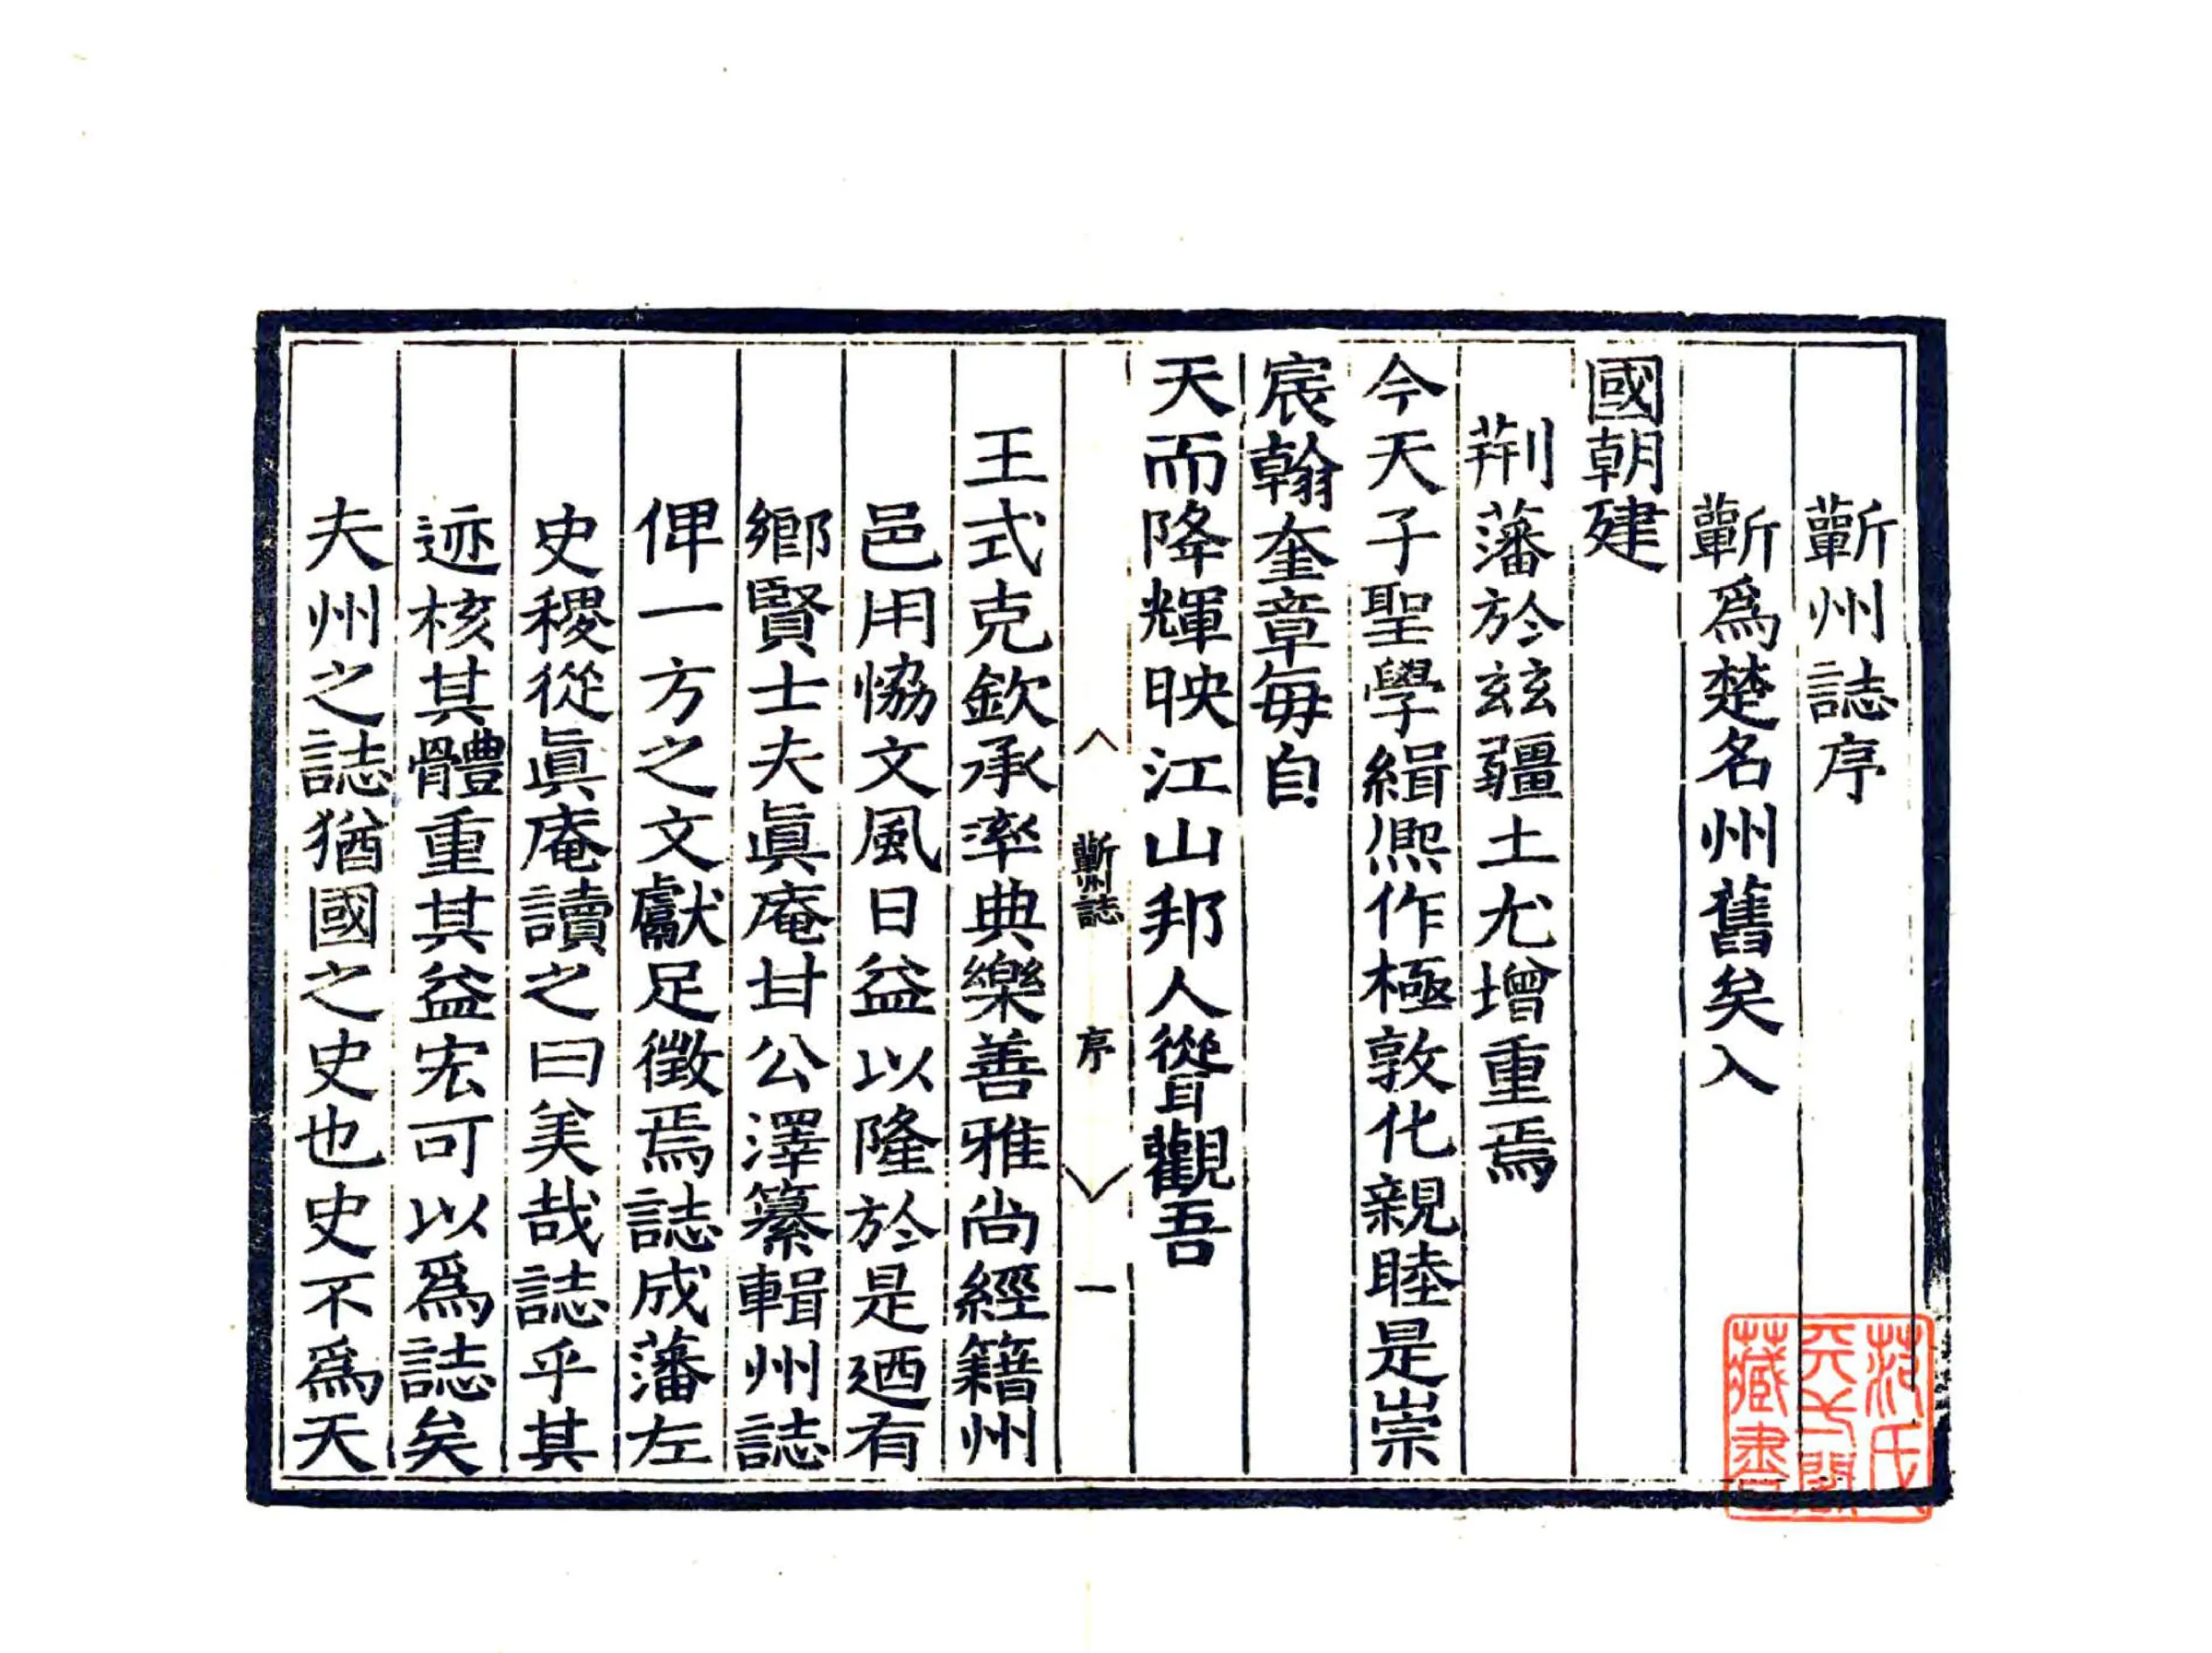 蘄州誌序
蘄爲楚名州舊矣入
國朝建
荆藩於玆疆土尤增重焉
今天子聖學緝熈作極敦化親睦是崇
宸翰奎章每自
天而降輝映江山邦人聳觀吾
蘄州誌 序 一
王式克欽承率典樂善雅尚經籍州
邑用恊文風日益以隆於是廼有
鄉賢士夫眞庵甘公澤纂輯州誌
俾一方之文獻足徵焉誌成藩左
史稷從眞庵讀之曰美哉誌乎其
迹核其體重其益宏可以爲誌矣
夫州之誌猶國之史也史不爲天
范氏
天一閣
藏書